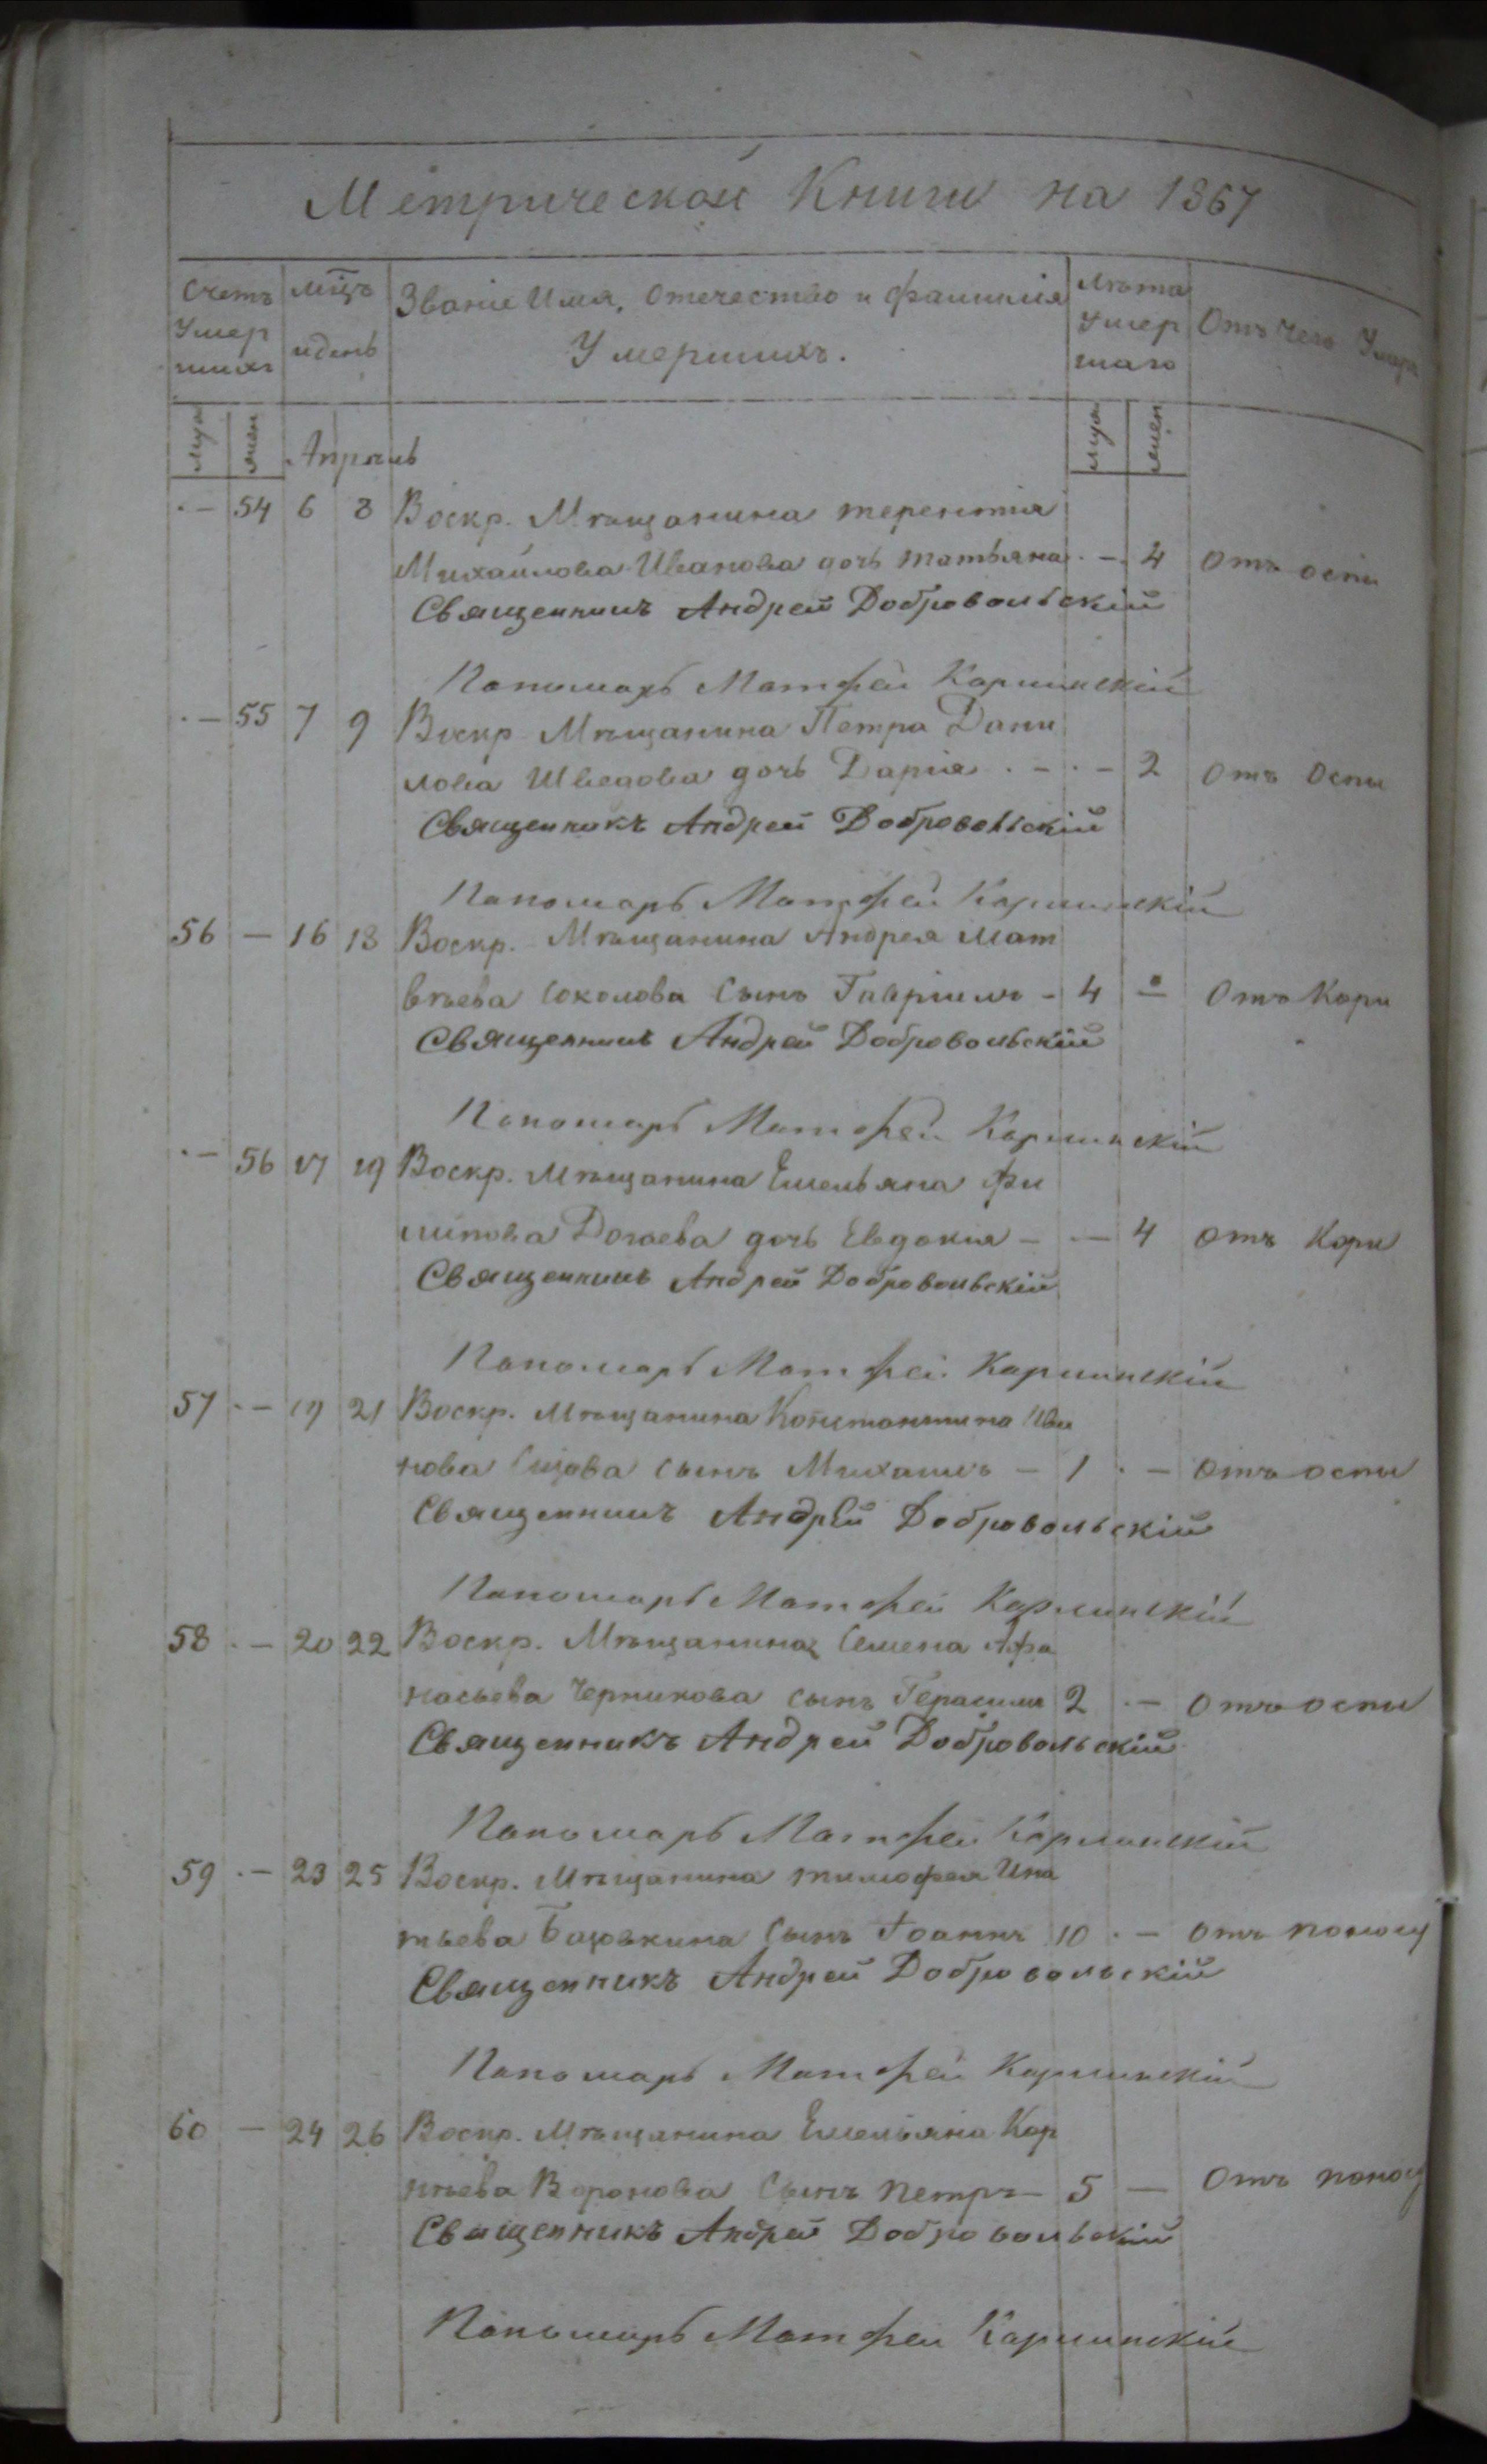 Метрической Книги на 1867
Счетъ Умер шихъ
мцъ и день
Званіе Имя, Отечество и фамилія Умершихъ.
Лѣта Умер шаго
Отъ Чего Умеръ
муж жен Апрѣль муж жен
·– 54 6 8 Воскр. Мѣщанина терентія
Михайлова Иванова дочь татьяна ·– 4 Отъ оспы
Священникъ Андрей Добровольскій
Пономарь Матфей Кармински́й
·– 55 7 9 Воскр Мѣщанина Петра Дани
лова Шведова дочь Дарія ·–·– 2 Отъ Оспы
Священникъ Андрей Добровольскій
Пономарь Матфей Карминскій
56 – 16 18 Воскр. Мѣщанина Андрея Мат
вѣева Соколова Сынъ Гавріилъ – 4 – Отъ Кори
Священникъ Андрей Добровольскій
Пономарь Матфей Карминскій
·– 56 17 19 Воскр. Мѣщанина Емельяна Фи
липова Догаева дочь Евдокия – ·– 4 отъ Кори
Священникъ Андрей Добровольскій
Пономарь Матфей Карминскій
57 ·– 19 21 Воскр. Мѣщанина Константина Ива
нова сынъ Михаилъ – 1 ·– отъ оспы
Священникъ Андрей Добровольскій
Пономарь Матфей Карминскій
58 ·– 20 22 Воскр. Мѣщанина Семена Афа
насьева Черникова сынъ Герасимъ 2 ·– отъ оспы
Священникъ Андрей Добровольскій
Пономарь Матфей Карминскій
59 ·– 23 25 Воскр. Мѣщанина тимофея Ипа
тьева Сынъ Іоаннъ 10 ·– отъ поносу
Священникъ Андрей Добровольскій
Пономарь Матфей Карминскій
60 – 24 26 Воскр. Мѣщанина Емельяна Кор
нѣева Воронова Сынъ петръ – 5 – Отъ поносу
Священникъ Андрей Добровольскій
Пономарь Матфей Карминскій